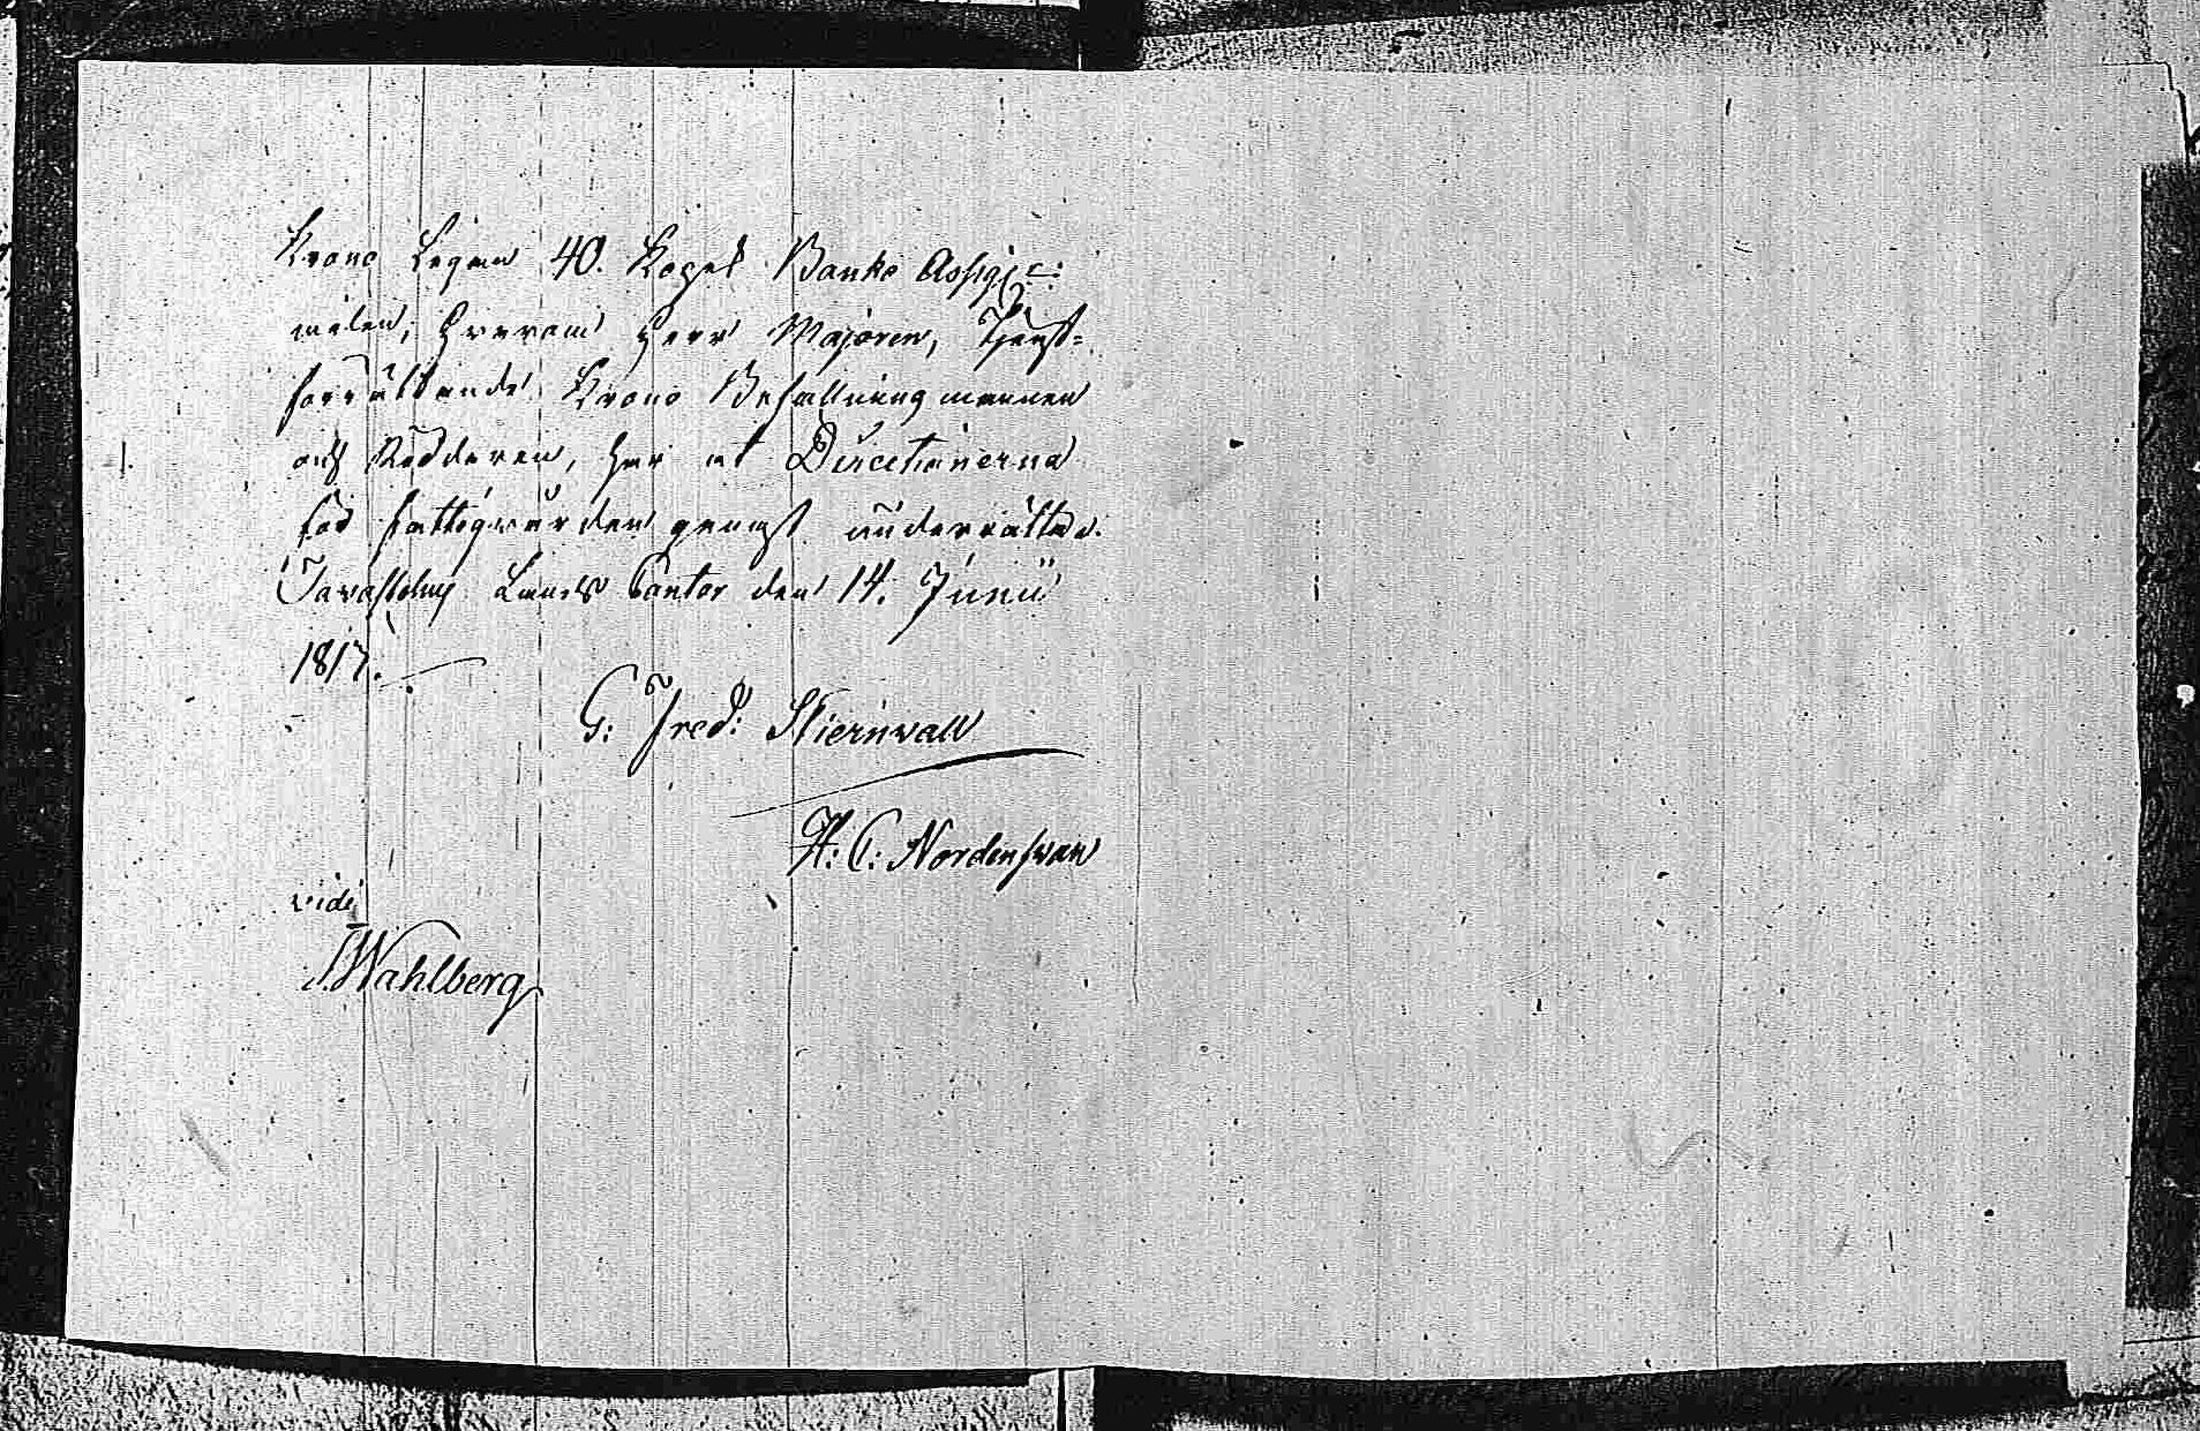 Krono Legan 40. Kopek Banko Assig:
nalen; hvarom Herr Majoren, Tjenst=
förrättande Krono Befallningsmannen
och Rådderen, har at Directionerna
för fattigvården genast underrätta.
Tavastehus Lands Contor den 14. Junii
1817.
G: Fred: Stiernvall
H: C: Nordenswan
vidi
J. Wahlberg